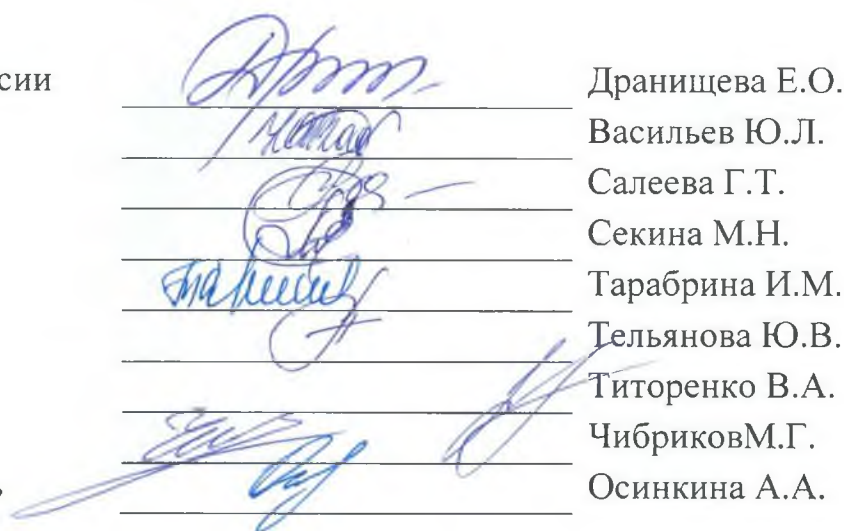 сии Дранищева Е.О.
Васильев Ю.Л.
Салеева Г.Т.
Секина М.Н.
Тарабрина И.М.
Тельянова Ю.В.
Титоренко В.А.
ЧибриковМ.Г.
Осинкина А.А.